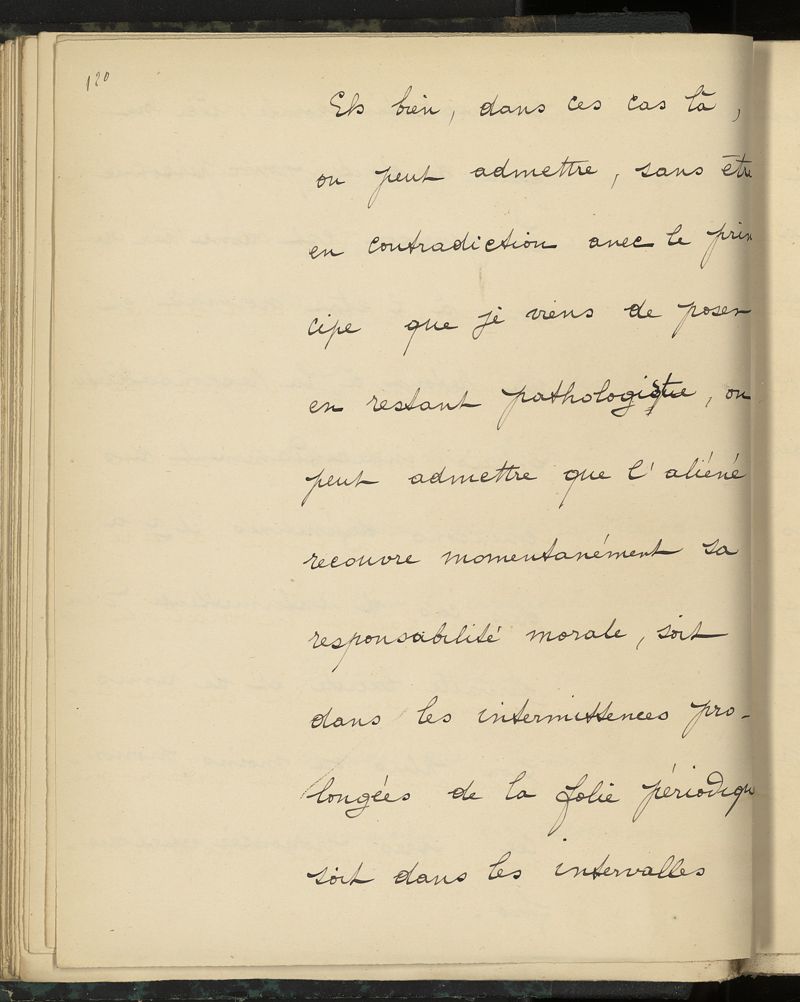 120
Eh bien, dans ces cas là,
on peut admettre, sans être
en contradiction avec le prin
cipe que je viens de poser
en restant pathologiste, on
peut admettre que l'aliéné
recouvre momentanément sa
responsabilité morale, soit
dans les intermittences pro-
longées de la folie périodiqu
soit dans les intervalles